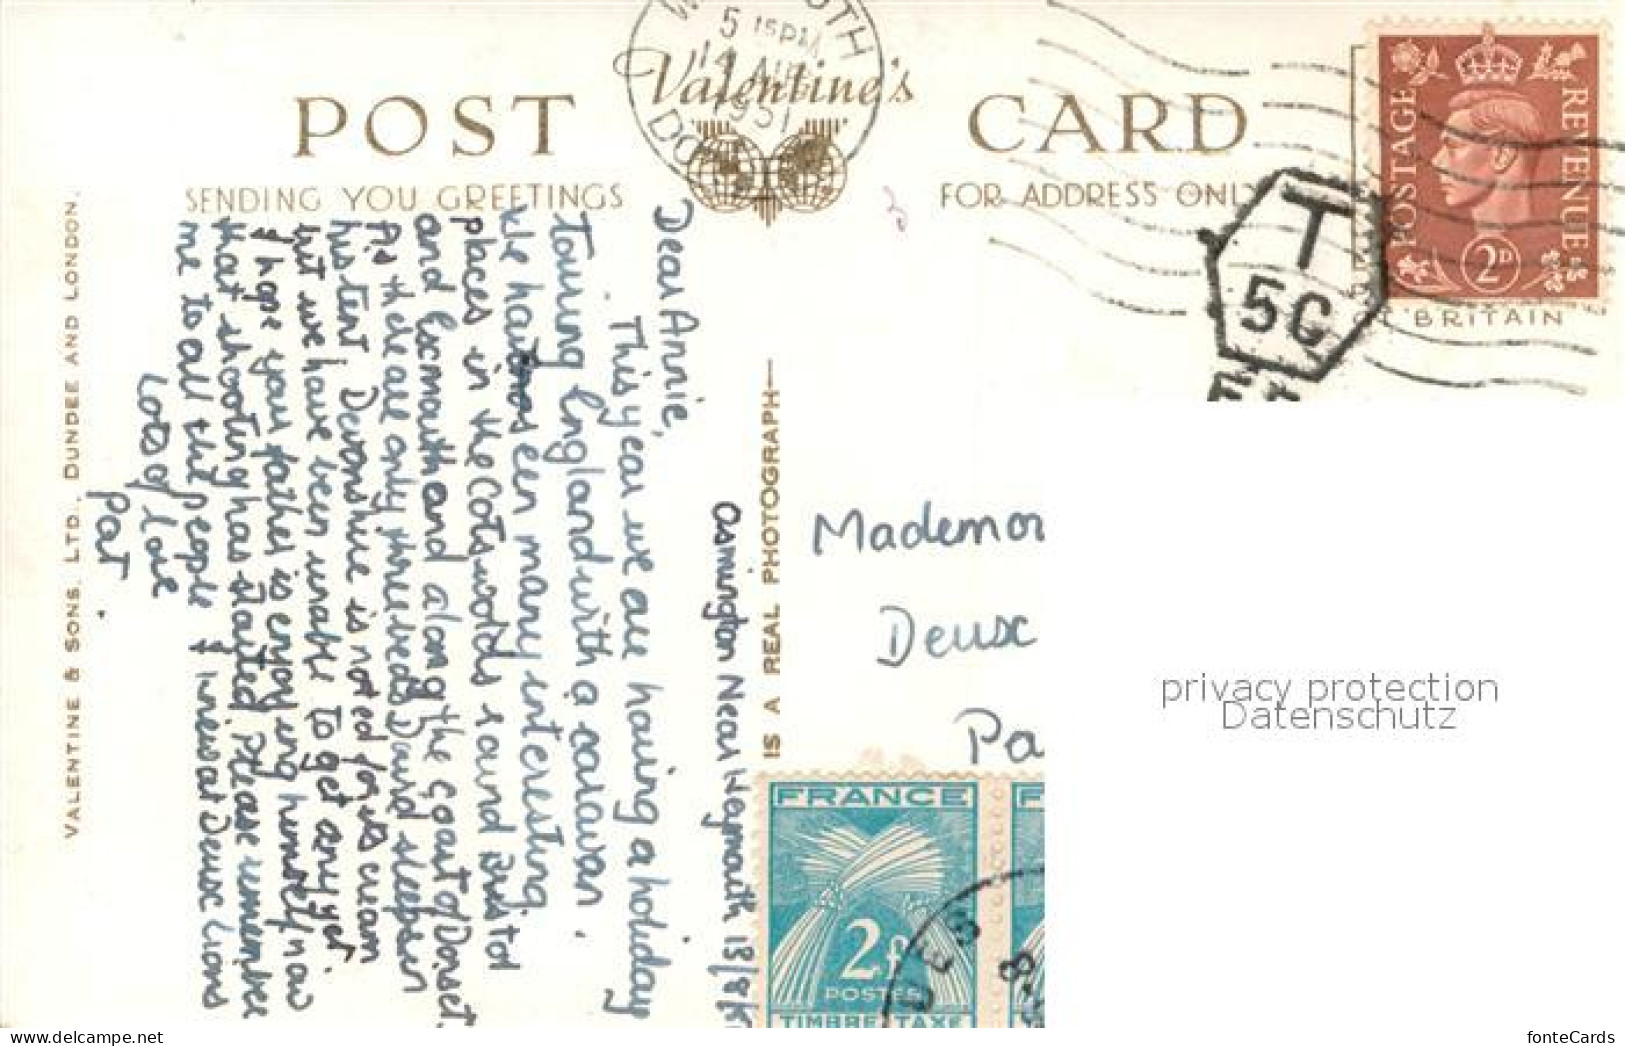 POST
Valentine's
CARD
SENDING YOU GREETINGS
FOR ADDRESS ONLY
5 15PM
1951
POSTAGE
REVENUE
2D
T
5C
BRITAIN
VALENTINE & SONS. LTD., DUNDEE AND LONDON.
IS A REAL PHOTOGRAPH
Osmington Near Weymouth 13/8/
Dear Annie,
This year we are having a holiday
touring England with a caravan.
We have seen many interesting
places in the Cotswolds round Bristol
and Exmouth and along the coast of Dorset.
As there are only three beds David sleeps in
his tent Devonshire is noted for its cream
but we have been unable to get any yet.
I hope your father is enjoying himself now
that shooting has started Please remember
me to all the people I met at Deux Lions
Lots of love
Pat.
Mademoi
Deux
Pa
FRANCE
2f
POSTES
TIMBRE TAXE
privacy protection
Datenschutz
www.delcampe.net
fonteCards